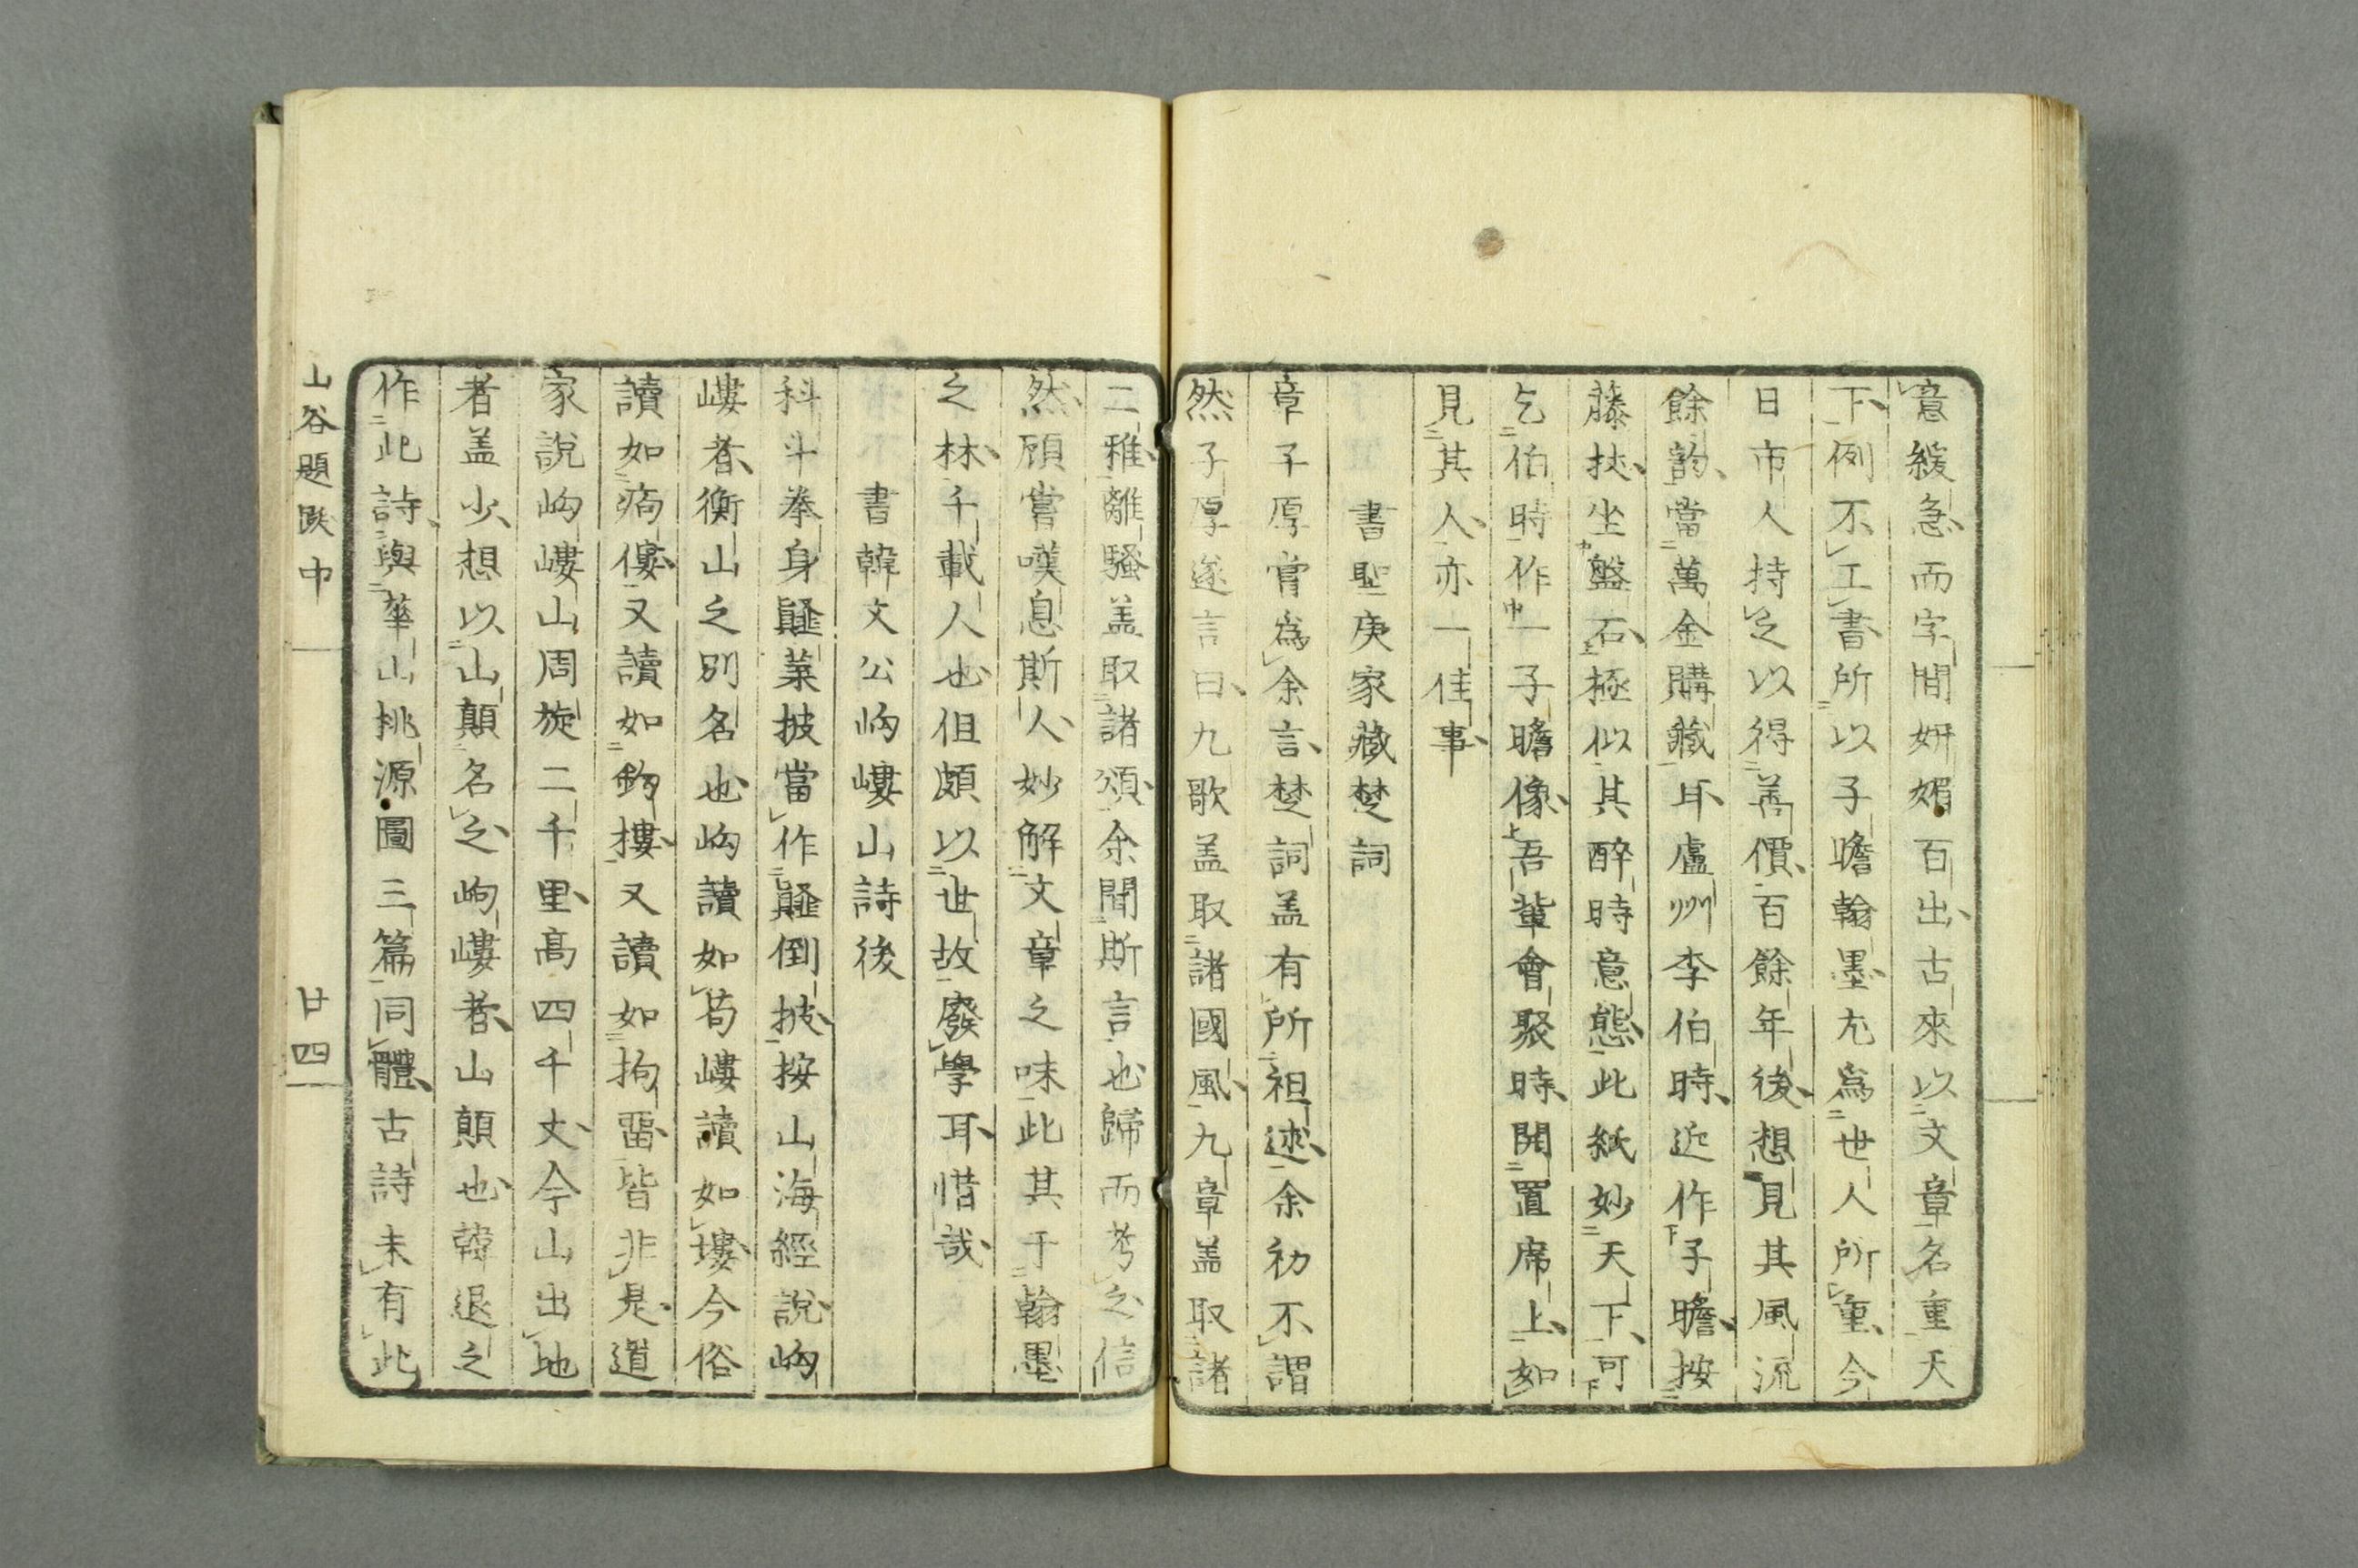 意緩急而字間妍媚百出古來以文章名重天
下例不工書所以子瞻翰墨尤爲世人所重今
日市人持之以得善價百餘年後想見其風流
餘韵當萬金購藏耳廬州李伯時近作子瞻按
藤扙坐盤石極似其醉時意態此紙妙天下可
乞伯時作一子瞻像吾輩會聚時開置席上如
見其人亦一佳事
書聖庚家藏楚詞
章子厚嘗爲余言楚詞盖有所祖述余初不謂
然子厚遂言曰九歌盖取諸國風九章盖取諸
二雅離騷盖取諸頌余聞斯言也歸而考之信
然顧嘗嘆息斯人妙解文章之味此其于翰墨
之林千載人也但頗以世故廢學耳惜哉
書韓文公岣嶁山詩後
科斗拳身薤葉披當作薤倒披按山海經說岣
嶁者衡山之別名也岣讀如苟嶁讀如塿今俗
讀如痀僂又讀如鈎摟又讀如拘留皆非是道
家說岣嶁山周旋二千里高四千丈今山出地
者盖少想以山顛名之岣嶁者山顛也韓退之
作此詩與華山桃源圖三篇同體古詩未有此
山谷題跋中
廿四